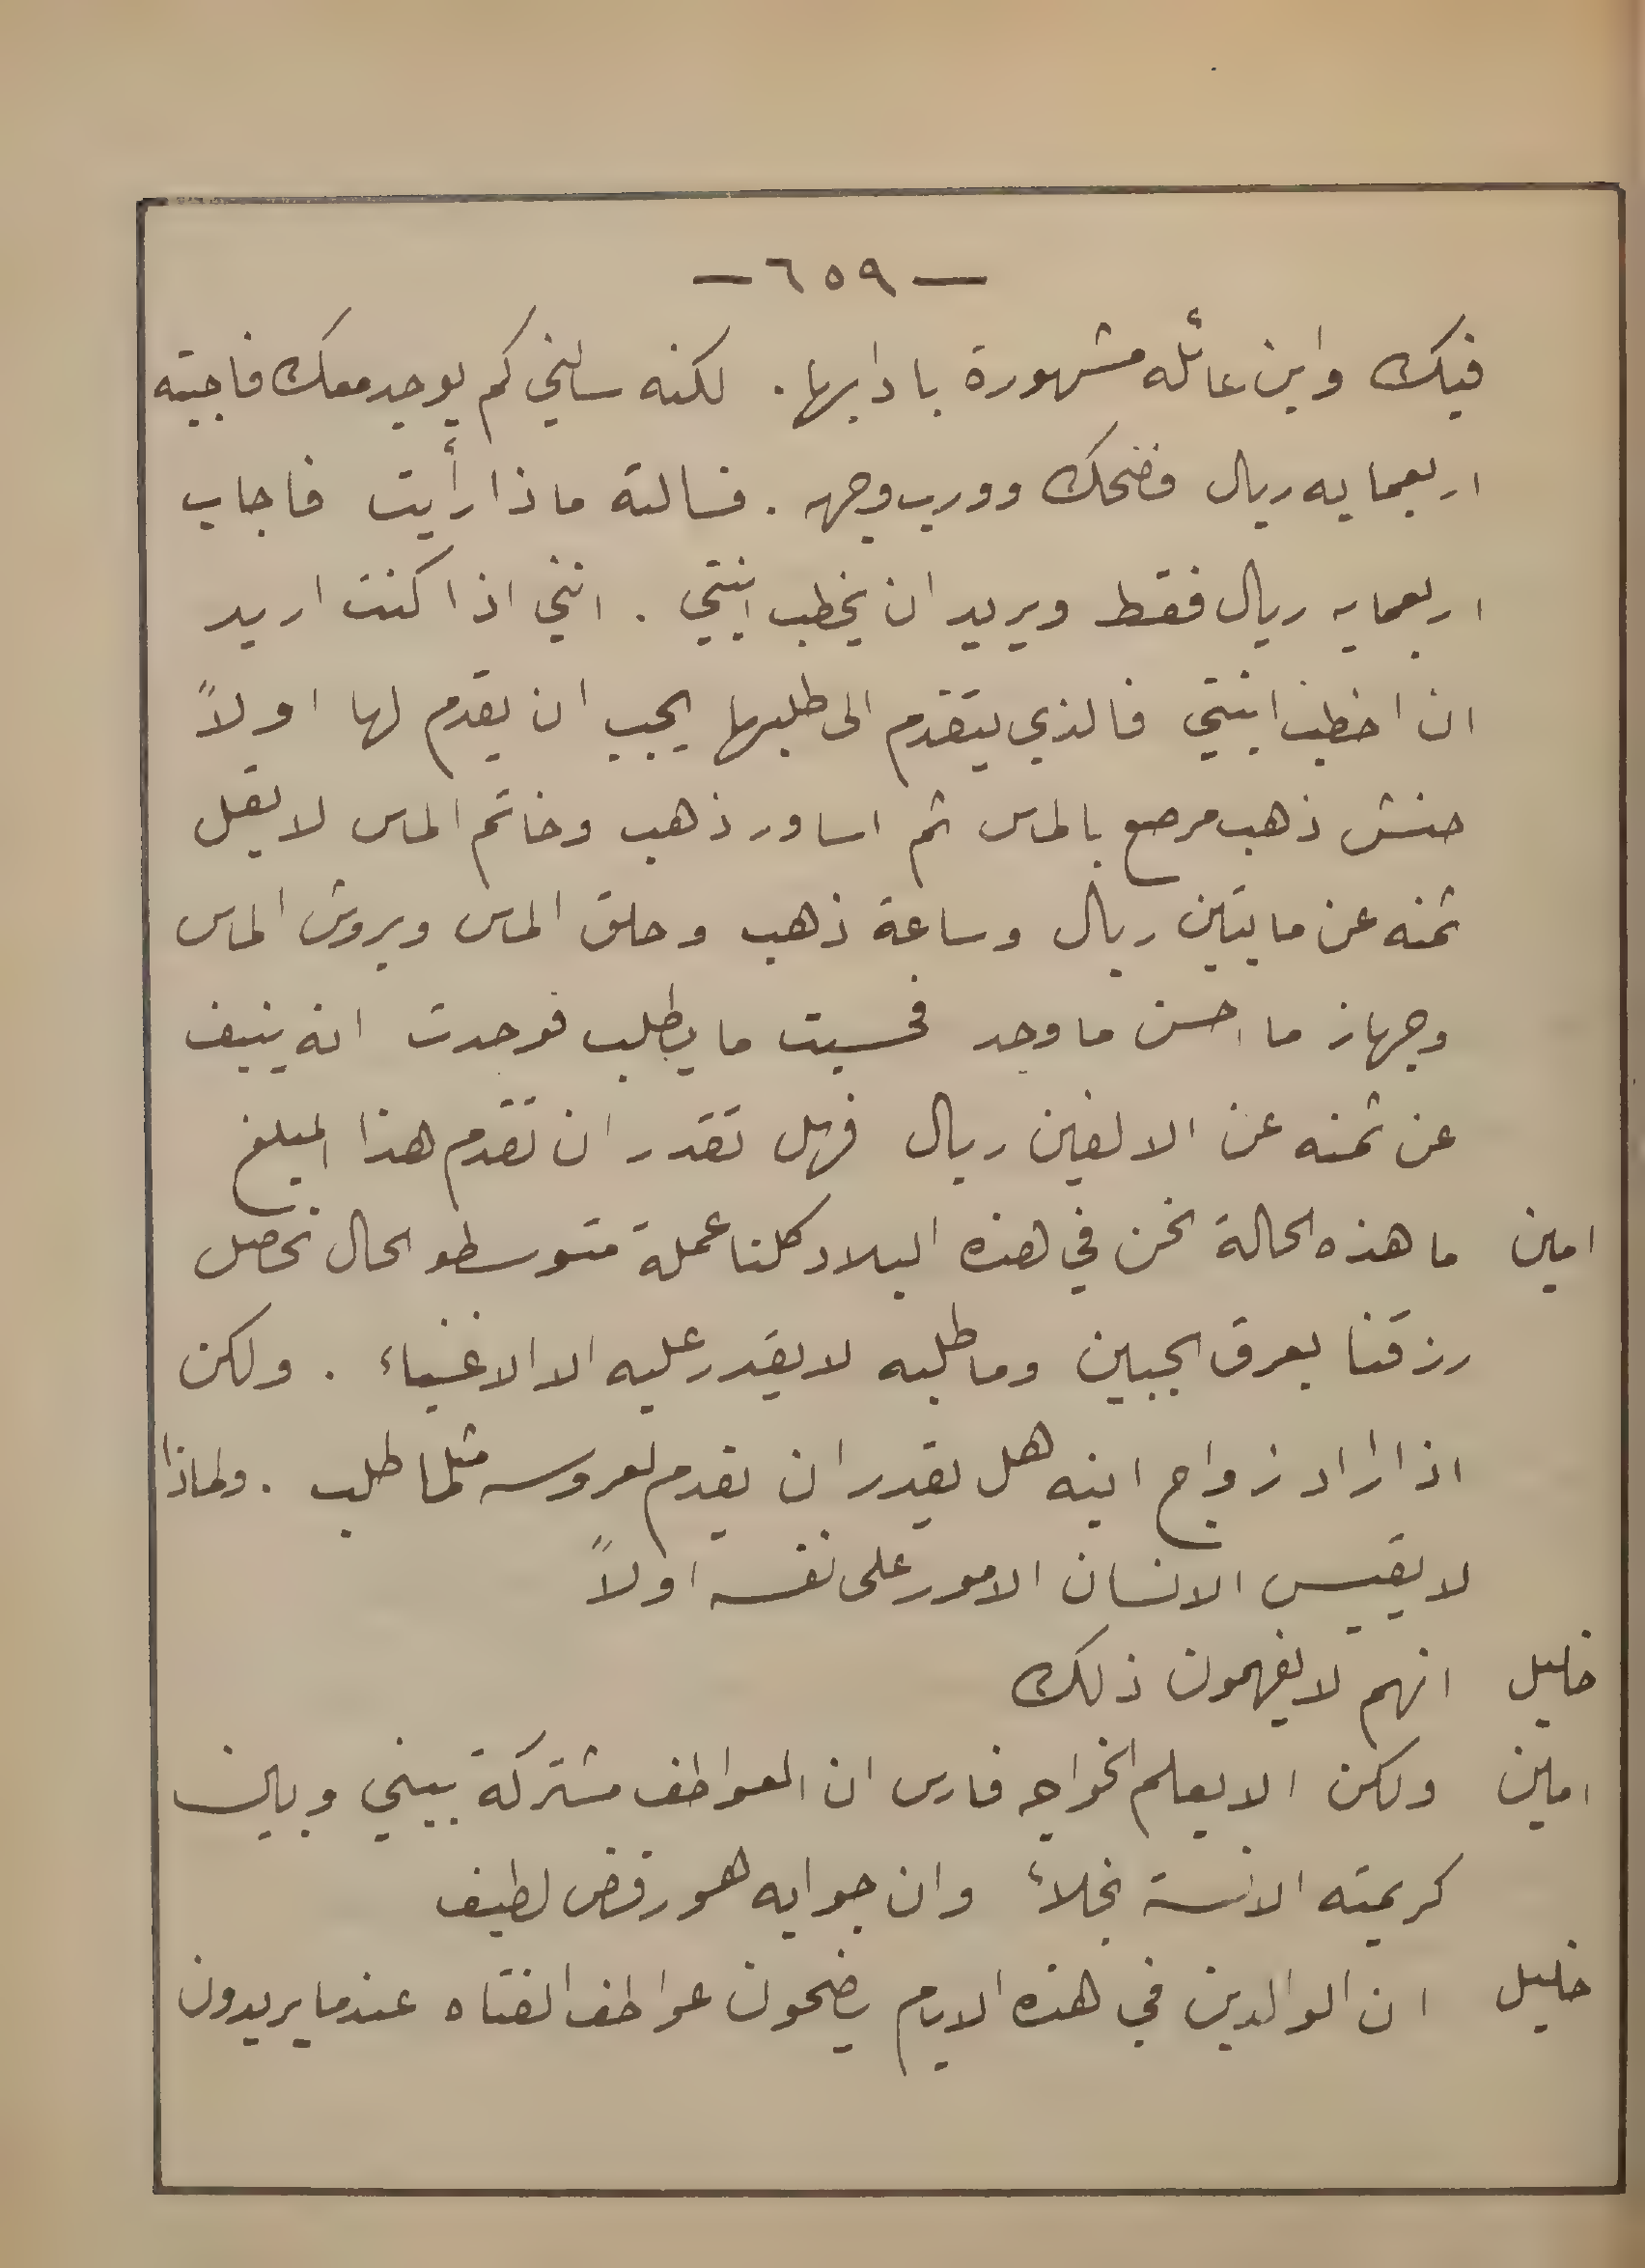 — ٦٥٩ —
فيك وابن عائله مشهورة بادابها . لكنه سالني كم يوجد معك فاجبته
اربعمايه ريال فضحك وورب وجهه . فسالته ماذا رأيت فاجاب
اربعمايه ريال فقط ويريد ان يخطب ابنتي . انني اذا كنت اريد
ان اخطب ابنتي فالذي يتقدم الى طلبها يجب ان يقدم لها اولاً
حنش ذهب مرصع بالماس ثم اساور ذهب وخاتم الماس لا يقل
ثمنه عن مايتين ريال وساعة ذهب وحلق الماس وبروش الماس
وجهاز ما احسن ما وجد فحسبت ما يطلب فوجدت انه ينيف
عن ثمنه عن الالفين ريال فهل تقدر ان تقدم هذا المبلغ
امين ما هذه الحالة نحن في هذه البلاد كلنا عملة متوسطو الحال نحصل
رزقنا بعرق الجبين وما طلبه لا يقدر عليه الا الاغنياء . ولكن
اذا اراد زواج ابنه هل يقدر ان يقدم لعروسه مثلما طلب . ولماذا
لا يقيس الانسان الامور على نفسه اولاً
خليل انهم لا يفهمون ذلك
امين ولكن الا يعلم الخواجه فارس ان العواطف مشتركة بيني وبين
كريمته الانسة نجلاء وان جوابه هو رفض لطيف
خليل ان الوالدين في هذه الايام يضحون عواطف الفتاه عندما يريدون